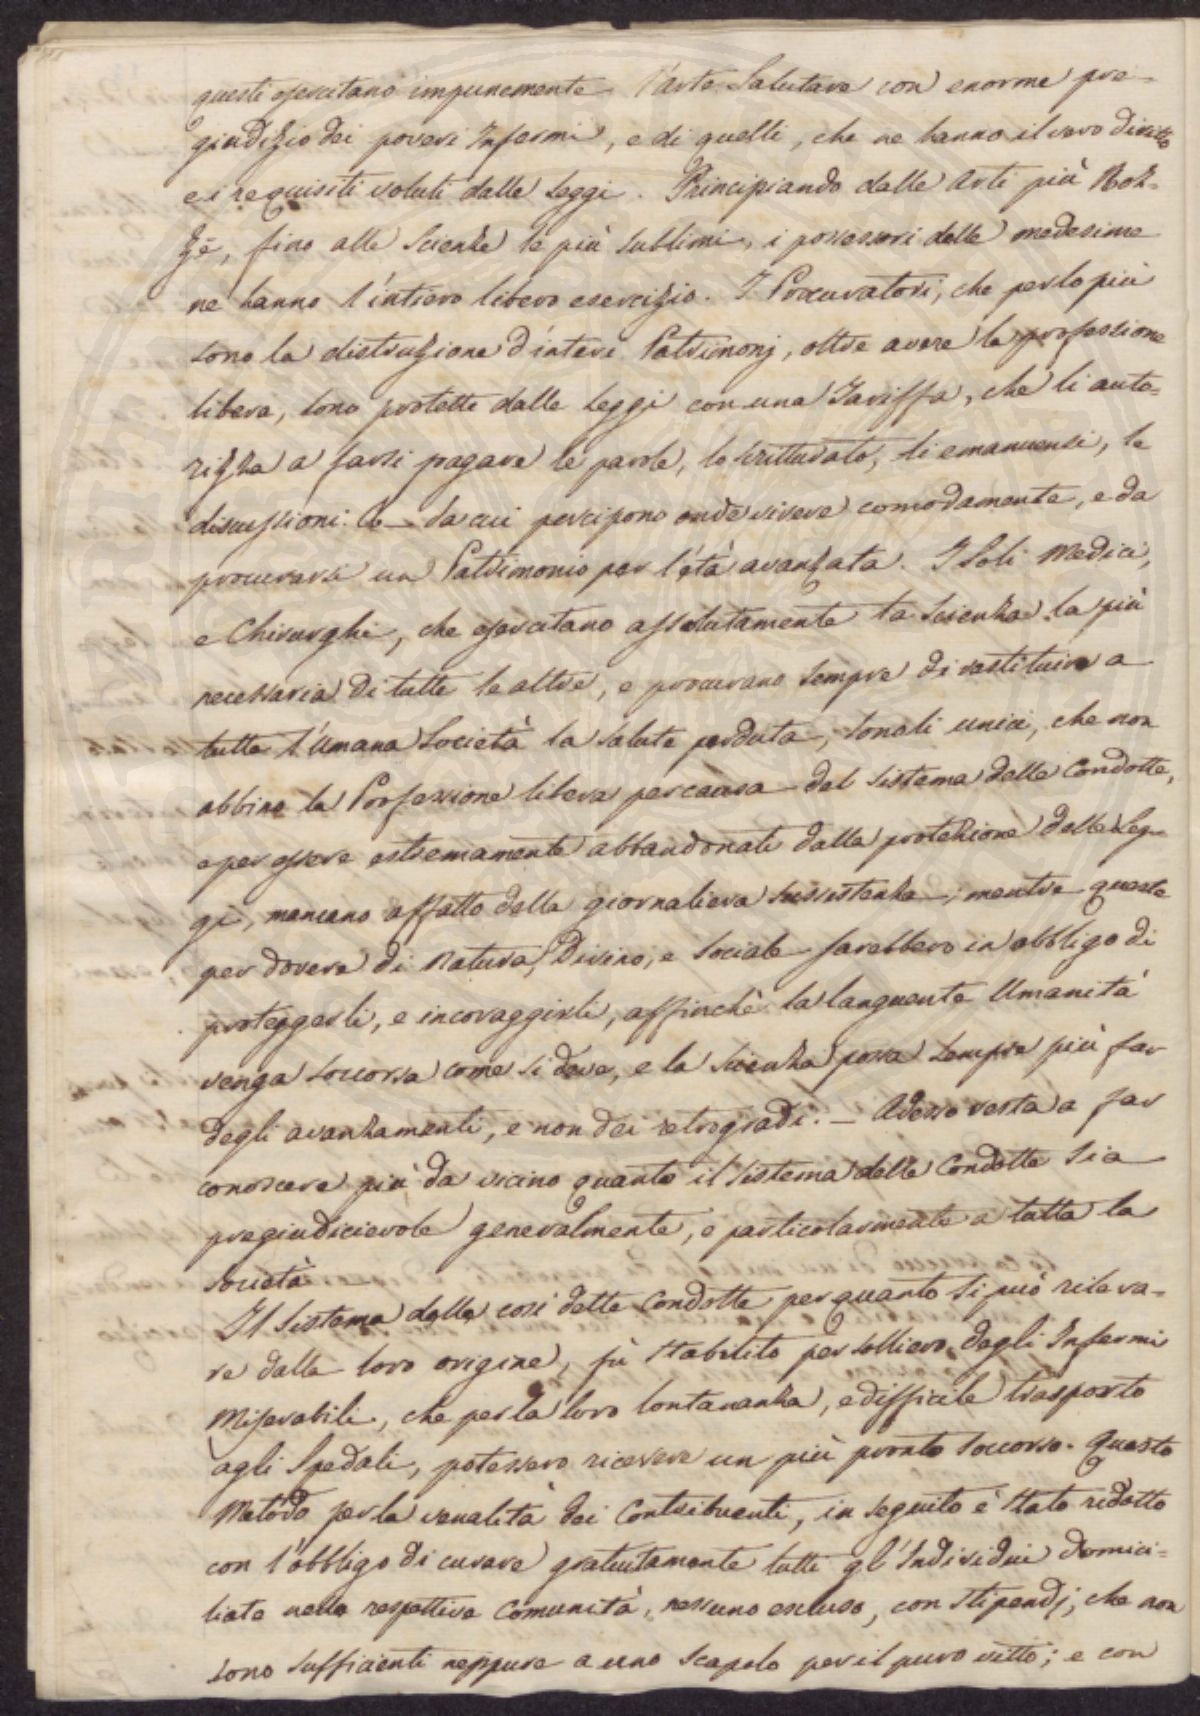 questi esercitano impunemente l'arte Salutare con enorme pre-
giudizio dei poveri Infermi, e di quelli, che ne hanno il vero diritto
e i requisiti voluti dalle Leggi. Principiando dalle Arti più Roz-
ze, fino alle Scienze le più sublimi, i possessori delle medesime
ne hanno l'intiero libero esercizio. I Procuratori, che per lo più
sono la distruzione d'interi Patrimonj, oltre avere la professione
libera, sono protette dalle Leggi con una Tariffa, che li auto-
rizza a farsi pagare le parole, lo scritturato, li emanuensi, le
discussioni &c — da cui percipono onde vivere comodamente, e da
procurarsi un Patrimonio per l'età avanzata. I Soli Medici,
e Chirurghi, che esercitano assolutamente la Scienza la più
necessaria di tutte le altre, e procurano sempre di restituire a
tutta l'Umana Società la salute perduta, sono li unici, che non
abbino la Professione libera per causa del Sistema delle Condotte,
e per essere estremamente abbandonati dalla protezione delle Leg-
gi, mancano affatto della giornaliera sussistenza; mentre queste
per dovere di Natura, Divino, e Sociale sarebbero in obbligo di
proteggerli, e incoraggirli, affinchè la languente Umanità
venga soccorsa come si deve, e la Scienza possa sempre più far
degli avanzamenti, e non dei retrogradi. — Adesso resta a far
conoscere più da vicino quanto il Sistema delle Condotte sia
pregiudicievole generalmente, e particolarmente a tutta la
società
Il Sistema delle così dette Condotte per quanto si può rileva-
re dalla loro origine, fù stabilito per sollievo degli Infermi
Miserabili, che per la loro lontananza, e difficile trasporto
agli Spedali, potessero ricevere un più pronto soccorso. Questo
Metodo per la venalità dei Contribuenti, in seguito è stato ridotto
con l'obbligo di curare gratuitamente tutti gl'Individui domici-
liate nella respettiva Comunità, nessuno escluso, con stipendj, che non
sono sufficienti neppure a uno scapolo per il puro vitto; e con